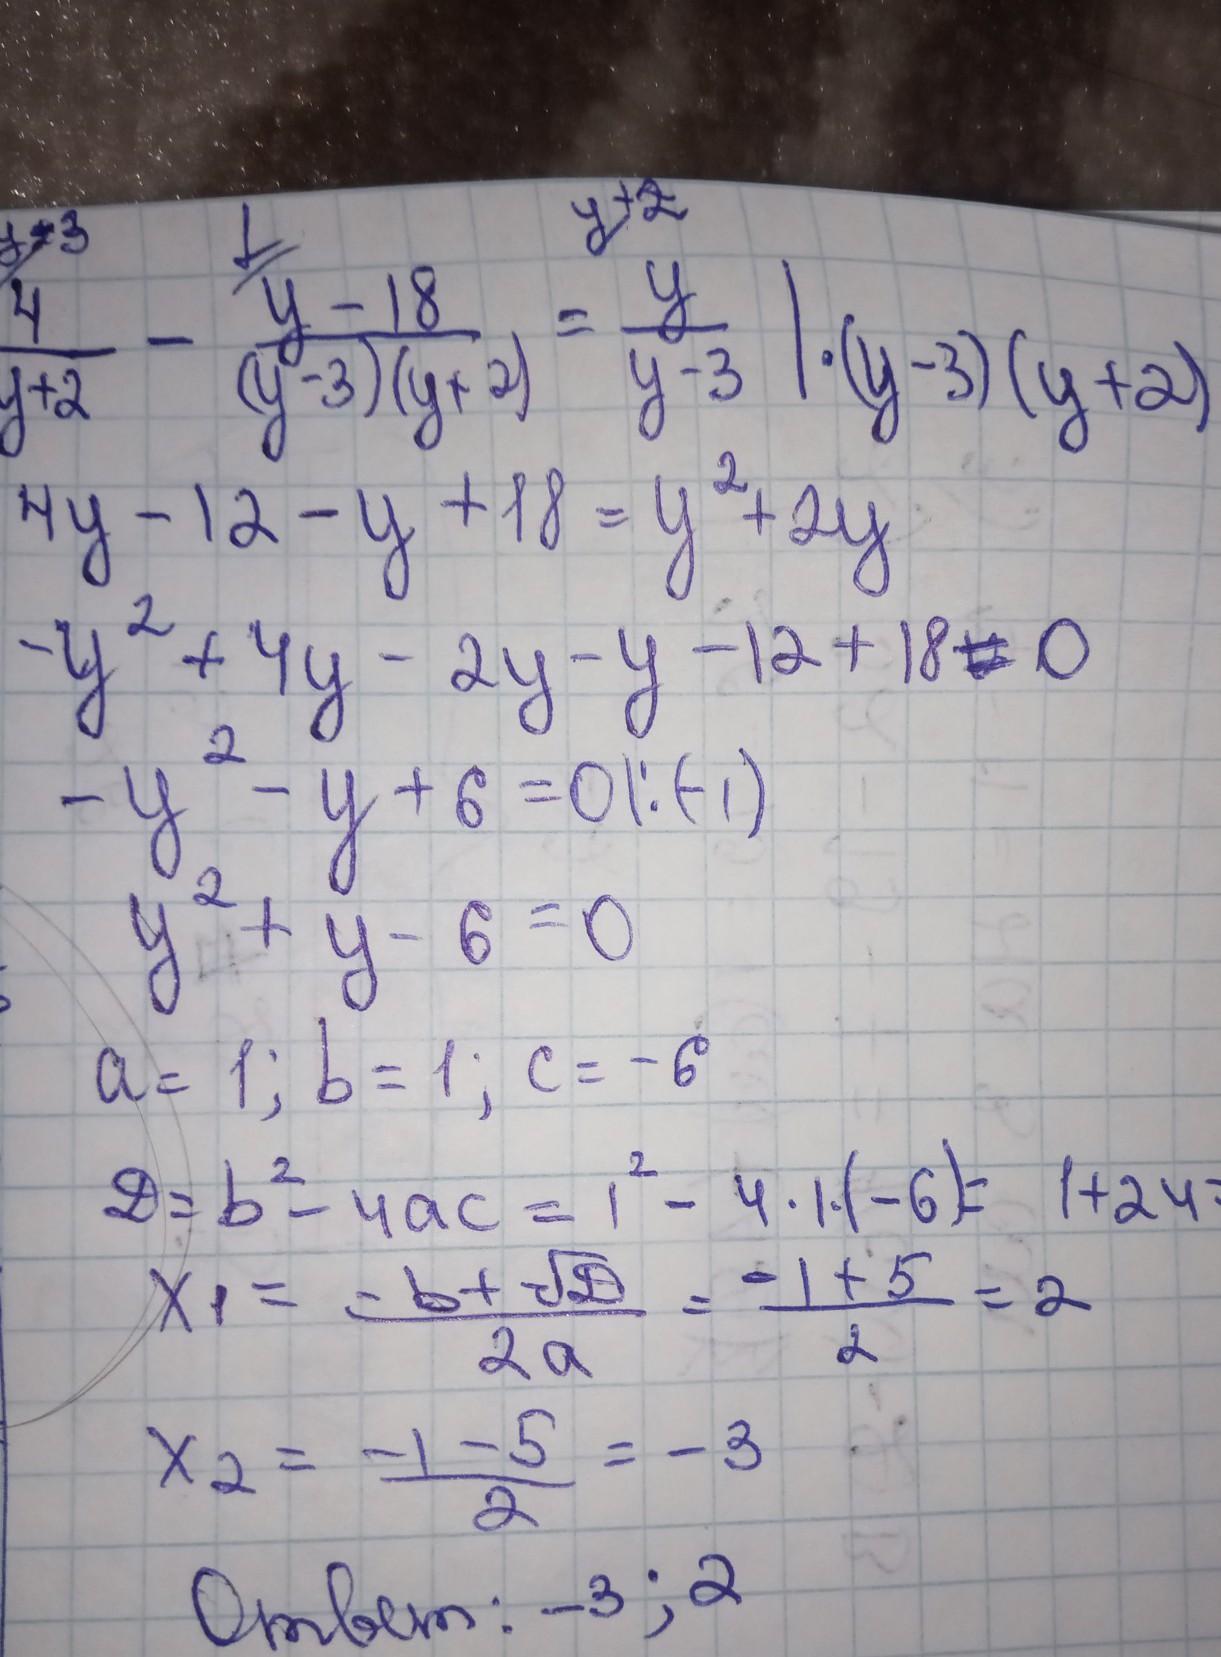 y-3 1 y+2
4/(y+2) - (y-18)/((y-3)(y+2)) = y/(y-3) |·(y-3)(y+2)
4y-12-y+18=y²+2y
-y²+4y-2y-y-12+18=0
-y²-y+6=0|:(-1)
y²+y-6=0
a=1; b=1; c=-6
D=b²-4ac=1²-4·1·(-6)=1+24=
x₁=(-b+√D)/2a=(-1+5)/2=2
x₂=(-1-5)/2=-3
Ответ: -3; 2